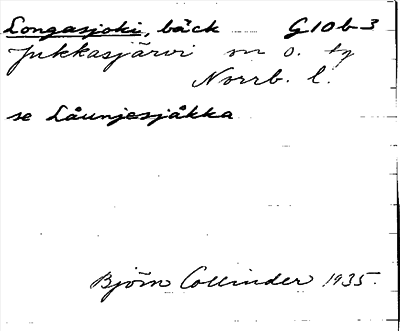 Longasjoki, bäck G10b-3
Jukkasjärvi sn o. tg
Norrb. l.
se Låunjesjåkka
Björn Collinder 1935.